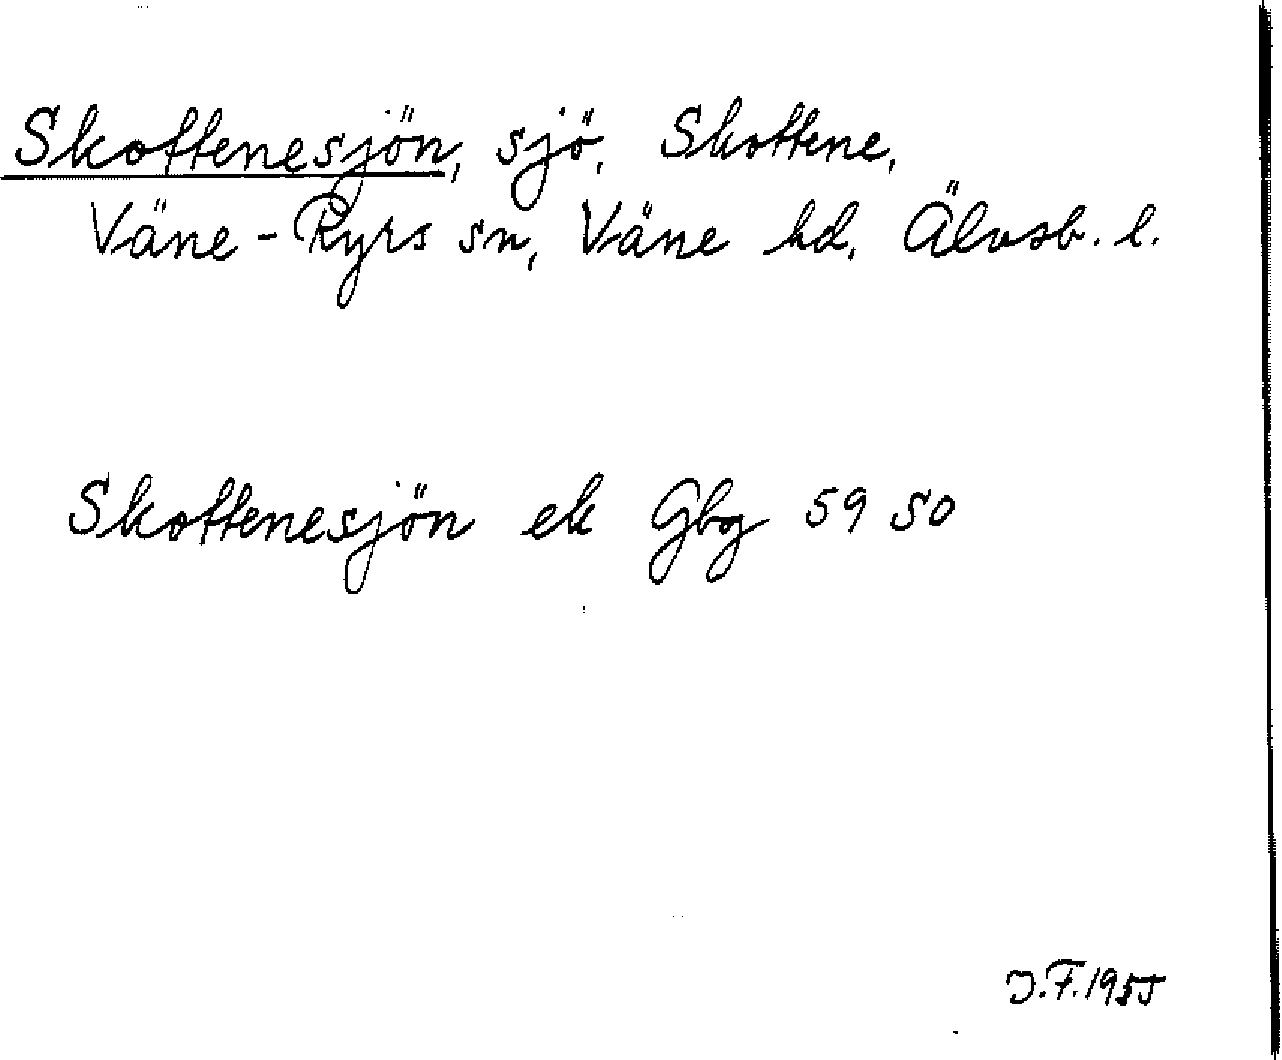 Skottenesjön, sjö, Skottene,
Väne-Ryrs sn, Väne hd, Älvsb. l.
Skottenesjön ek Gbg 59 SO
J.F. 1955